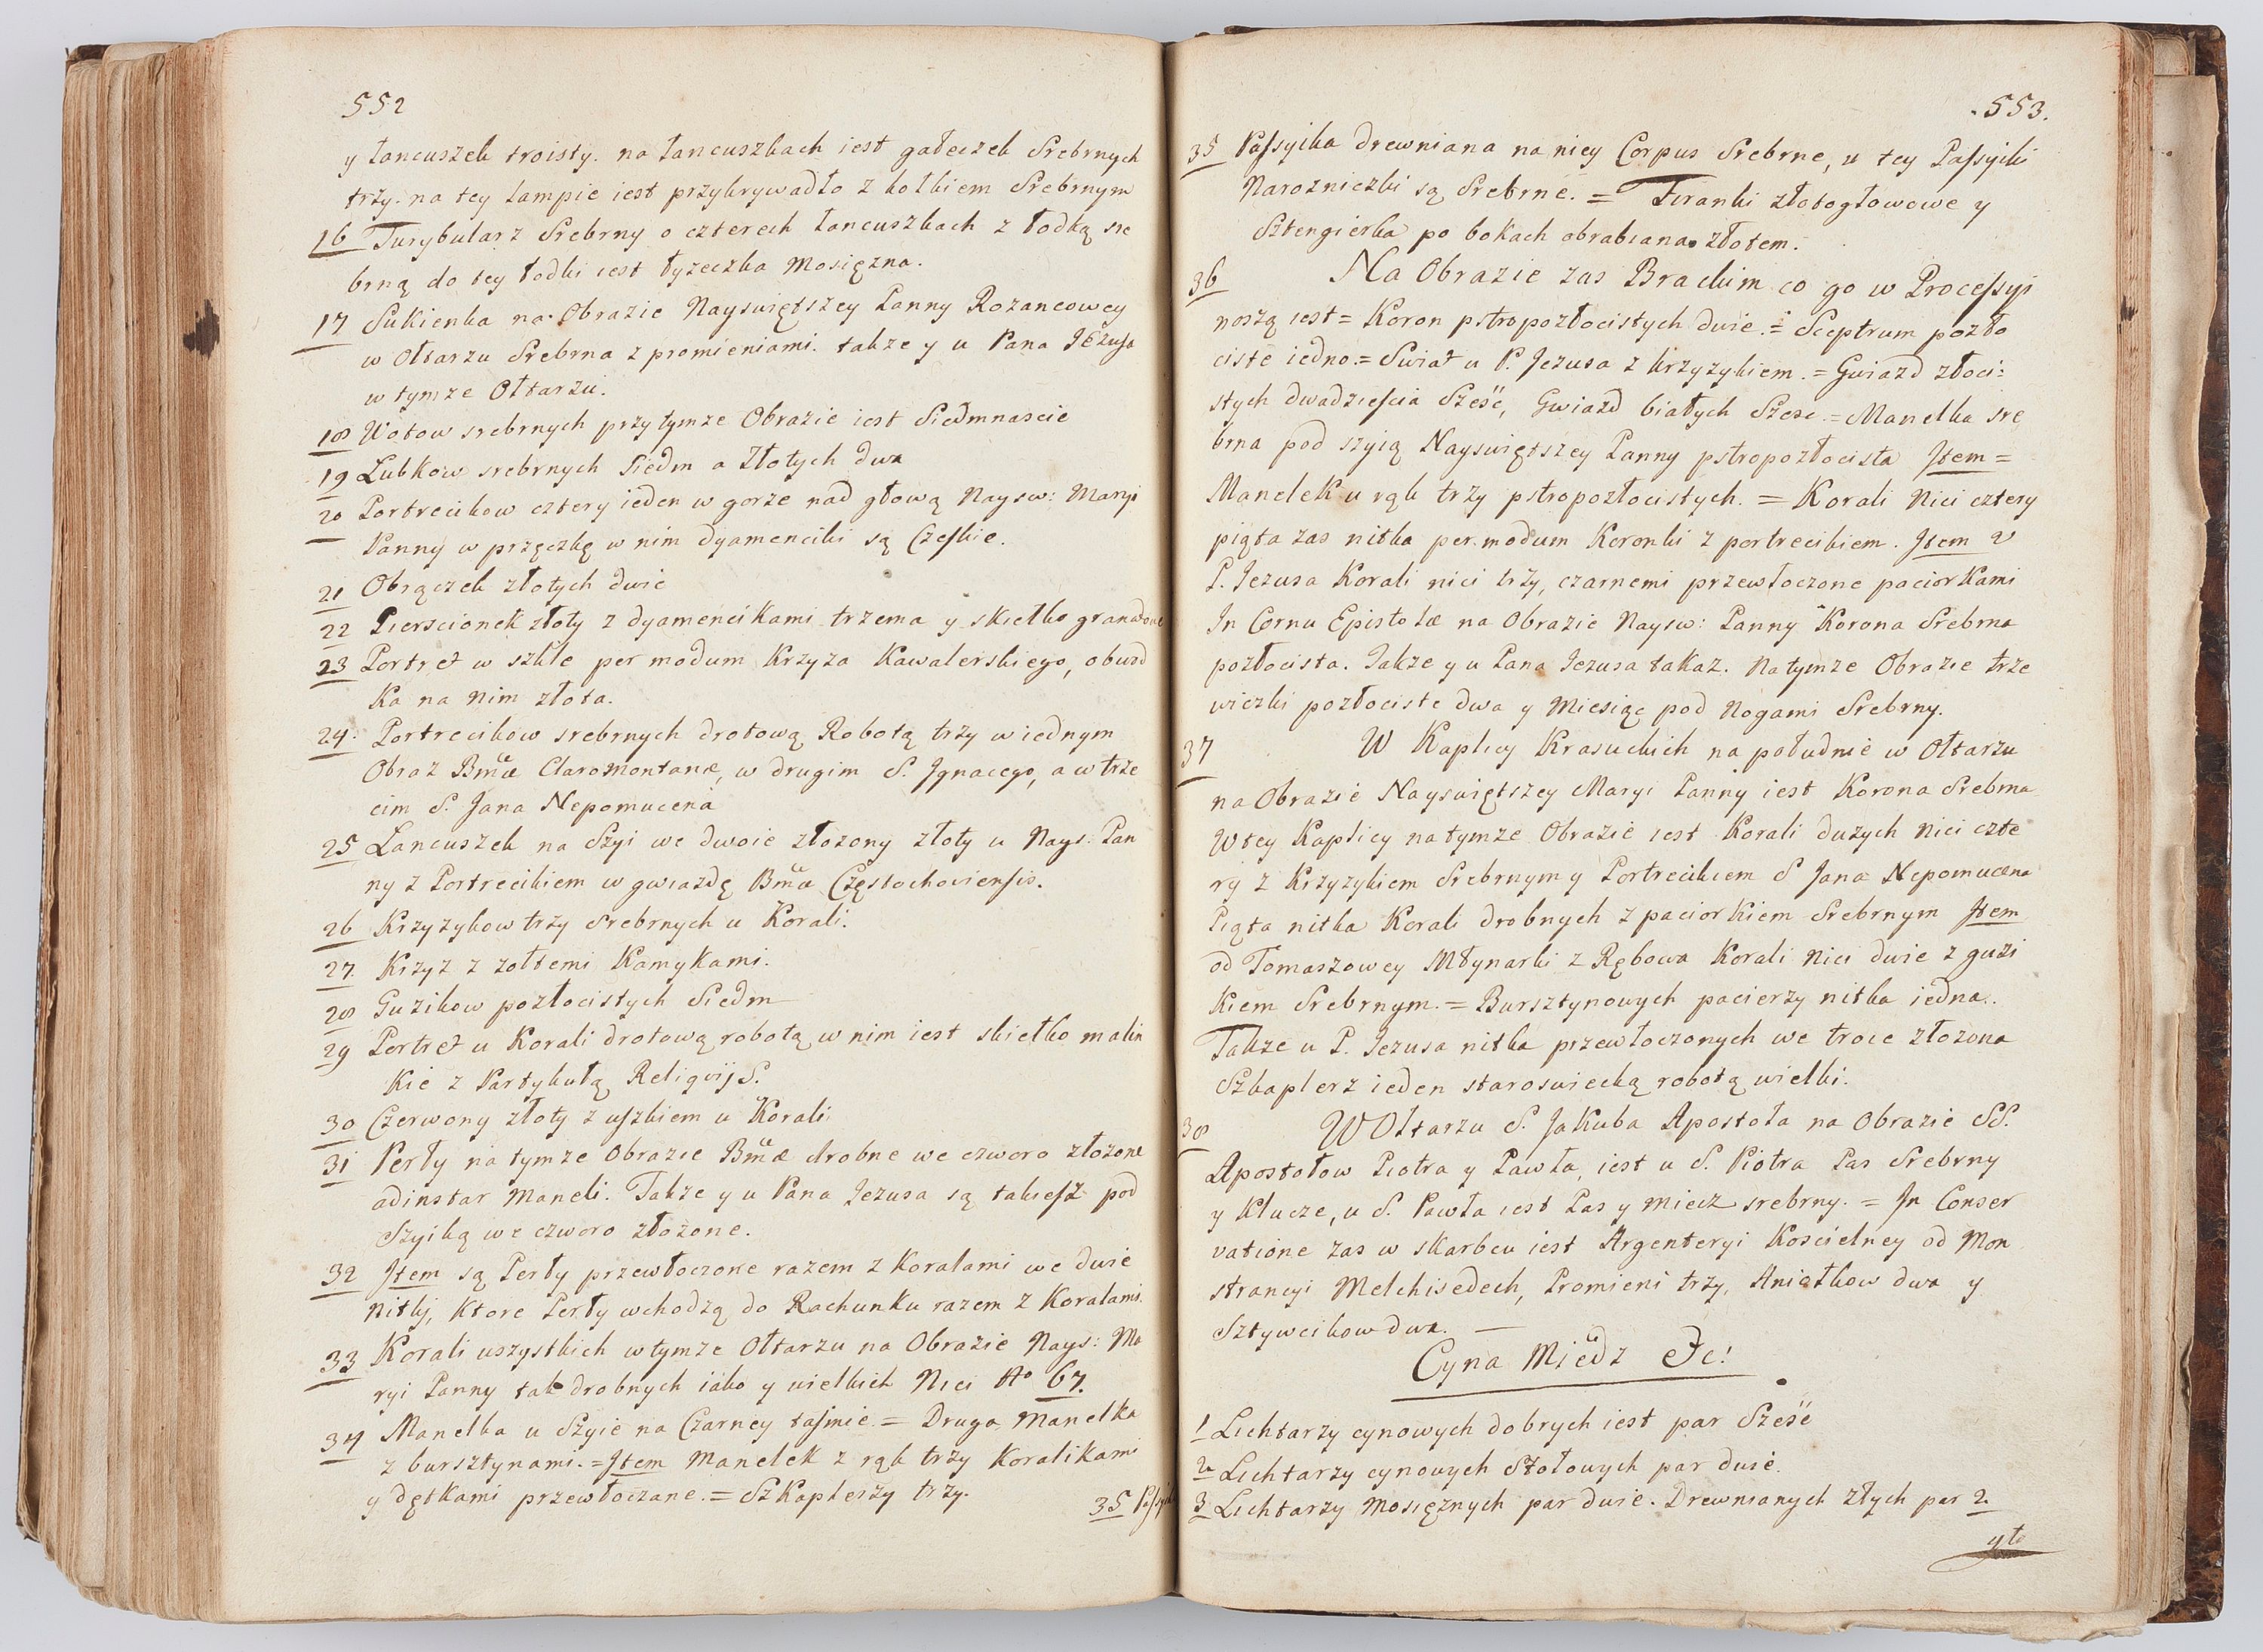 552
y Łancuszek troisty. na Łancuszkach iest gałeczek Srebrnych
trzy. na tey Lampie iest przykrywadło z kołkiem Srebrnym
16 Turybularz Srebrny o czterech Łancuszkach z łodką sre
brną do tey łodki iest łyzeczka Mosięzna.
17 Sukienka na Obrazie Nayswiętszey Panny Rozancowey
w Ołtarzu Srebrna z promieniami. takze y u Pana JEzusa
w tymze Ołtarzu.
18 Wotow srebrnych przy tymze Obrazie iest Siedmnascie
19 Lubkow srebrnych Siedm a Złotych dwa
20 Portrecikow cztery ieden w gorze nad głową Naysw: Maryi
Panny w przęczkę w nim dyamenciki są Czeskie.
21 Obrączek złotych dwie
22 Pierscionek złoty z dyamencikami trzema y skiełko granatowe
23 Portret w szkle per modum Krzyza Kawalerskiego, obwod
ka na nim złota.
24 Portrecikow srebrnych drotową Robotą trzy w iednym
Obraz Bmæ Claromontanæ, w drugim S. Jgnacego, a w trze
cim S. Jana Nepomucena
25 Lancuszek na Szyi we dwoie złozony złoty u Nays: Pan
ny z Portrecikiem w gwiazdę Bmæ Częstochoviensis.
26 Krzyzykow trzy srebrnych u Korali.
27 Krzyz z zołtemi Kamykami.
28 Guzikow pozłocistych Siedm
29 Portret u Korali drotową robotą w nim iest skiełko malin
kie z Partykułą Religvij S.
30 Czerwony złoty z uszkiem u Korali
31 Perły na tymze Obrazie Bmæ drobne we czworo złozone
adinstar Maneli. Takze y u Pana Jezusa są takiesz pod
Szyiką we czworo złozone.
32 Jtem są Perły przewłoczone razem z Koralami we dwie
nitky, Ktore Perły wchodzą do Rachunku razem z Koralami.
33 Korali wszystkich w tymze Ołtarzu na Obrazie Nays: Ma
ryi Panny tak drobnych iako y wielkich Nici No 67.
34 Manelka u Szyie na Czarney tasmie = Druga Manelka
z bursztynami. = Jtem Manelek z rąk trzy Koralikami
y dętkami przewłoczane. = SzKaplerzy trzy.
35 Passyi
553.
35 Passyika drewniana na niey Corpus Srebrne, u tey Passyiki
Narozniczki są Srebrne. = Firanki złotogłowowe y
Sztengierka po bokach obrabiana złotem.
36 Na Obrazie zas Brackim co go w Processyi
noszą iest = Koron pstropozłocistych dwie. = Sceptrum pozło
ciste iedno. = Swiat u P. Jezusa z krzyzykiem. = Gwiazd złoci=
stych dwadziescia Szesc, Gwiazd białych Szesc. = Manelka sre
brna pod szyią Nayswiętszey Panny pstropozłocista Jtem =
Manelek u rąk trzy pstropozłocistych. = Korali Nici cztery
piąta zas nitka per modum Koronki z portrecikiem. Jtem u
P. Jezusa Korali nici trzy, czarnemi przewłoczone paciorkami
In Cornu Epistolæ na Obrazie Naysw: Panny Korona Srebrna
pozłocista. Takze y u Pana Jezusa takaz. Na tymze Obrazie trze
wiczki pozłociste dwa y Miesiąc pod Nogami Srebrny.
37 W Kaplicy Krasuckich na południe w Ołtarzu
na Obrazie Nayswiętszey Maryi Panny iest Korona Srebrna
W tey Kaplicy na tymze Obrazie iest Korali duzych Nici czte
ry z Krzyzykiem Srebrnym y Portrecikiem S Jana Nepomucena
Piąta nitka Korali drobnych z paciorkiem Srebrnym Jtem
od Tomaszowey Młynarki z Rębowa Korali Nici dwie z guzi
kiem Srebrnym. = Bursztynowych pacierzy nitka iedna.
Takze u P. Jezusa nitka przewłoczonych we troie złozona
Szkaplerz ieden staroswiecką robotą wielki.
38 W Ołtarzu S. Jakuba Apostoła na Obrazie SS.
Apostołow Piotra y Pawła, iest u S. Piotra Pas Srebrny
y Klucze, u S. Pawła iest Pas y miecz srebrny. = Jn Conser
vatione zas w skarbcu iest Argenteryi Koscielney od Mon
strancyi Melchisedech, Promieni trzy, Aniołkow dwa y
Sztywcikow dwa. —
Cyna Miedz Etc!
1 Lichtarzy cynowych dobrych iest par Szesc
2 Lichtarzy cynowych Stołowych par dwie.
3 Lichtarzy Mosięznych par dwie. Drewnianych złych par 2.
4to